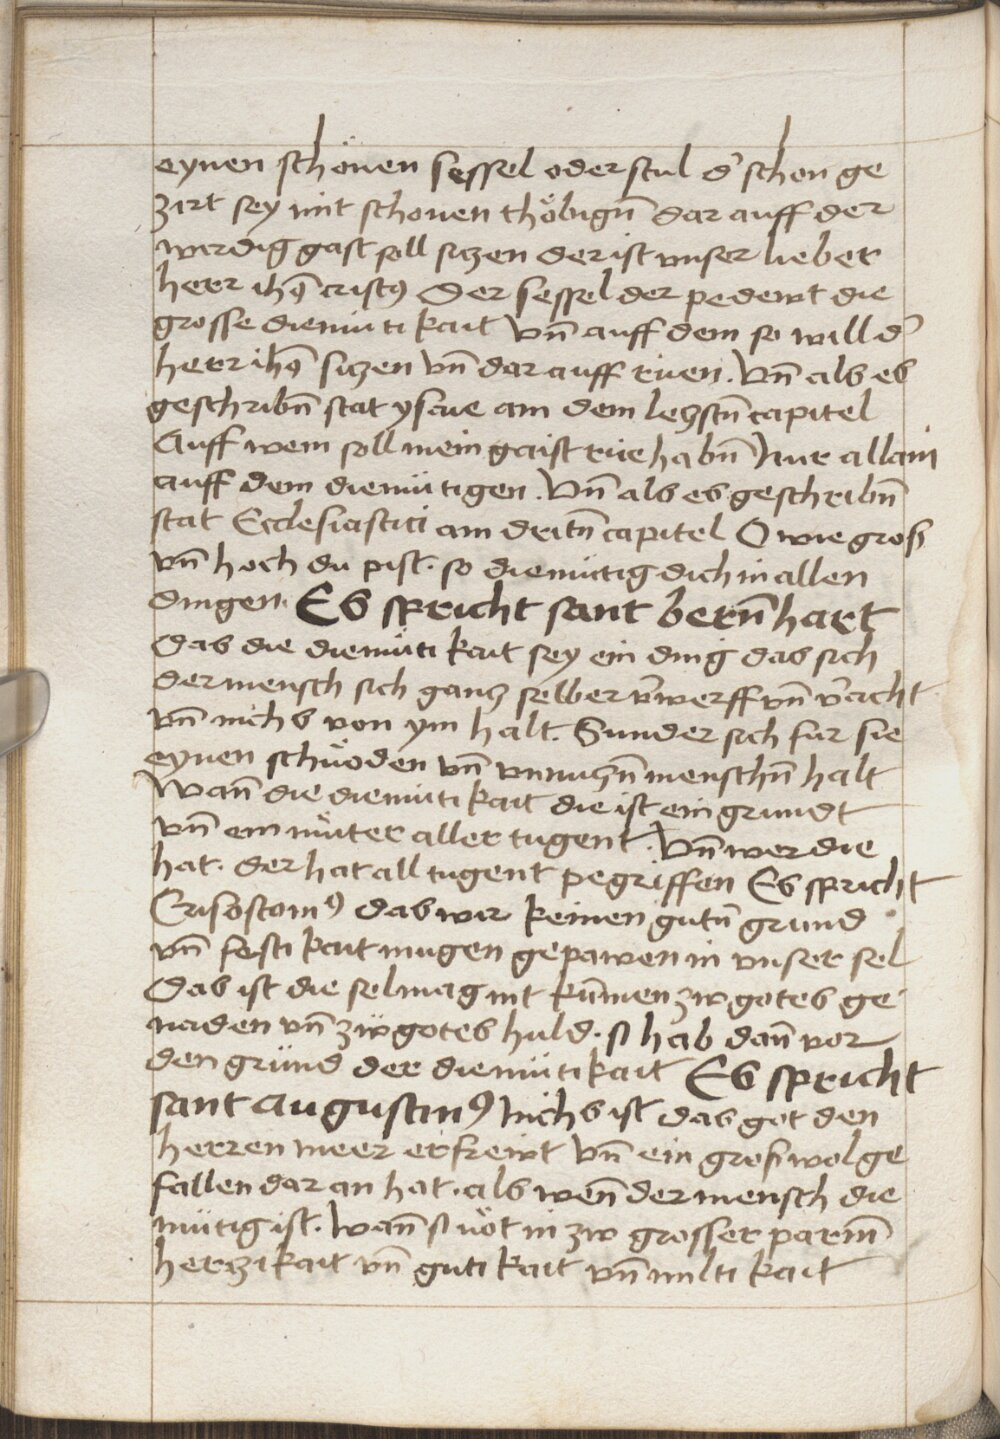 eynen schönen sessel oder stul d' schon ge
zirt sey mit schonen thöbign̄ dar auff der
wirdig gast soll siczen der ist vnser lieber
herr ihs̄ cristꝰ Der sessel der pedewt die
grosse diemüti kait Vn̄ auff dem so will d'
herr ihs̄ siczen vn̄ dar auff rüen. Vn̄ als es
geschribn̄ stat ysaie am dem leczstn̄ capitel
Auff wem soll mein gaist rüe habn̄ Nur allain
auff dem diemütigen. Vn̄ als es geschribn̄
stat Ecclesiastici am dritn̄ capitel O wie groß
vn̄ hoch du pist. so diemütig dich in allen
dingen. Es spricht sant bern̄hart
Das die diemüti kait sey ein ding das sich
der mensch sich gancz selber v̄werff vn̄ v̄acht
vn̄ nichs von ym halt. Sunder sich für sie
eynen schnöden vn̄ vnnuczn̄ menschn̄ halt
Wan̄ die diemüti kait die ist ein grundt
vn̄ ein mùter aller tugent. Vn̄ wer die
hat. der hat all tugent pegriffen Es spricht
Crisostomꝰ das wir keinen gutn̄ grund
vn̄ festi kait mugen gepawen in vnser sel
Das ist die sel mag nit kum̄en zw gotes ge
naden vn̄ zw gotes huld. ß hab dan̄ vor
den grund der diemüti kait Es spricht
sant Augustinꝰ Nichs ist das got den
herren meer erfrewt vn̄ ein groß wolge
fallen dar an hat. als wen̄ der mensch die
mütig ist. Wan̄ ß nöt in zw grosser parm̄
herczi kait vn̄ guti kait vn̄ milti kait